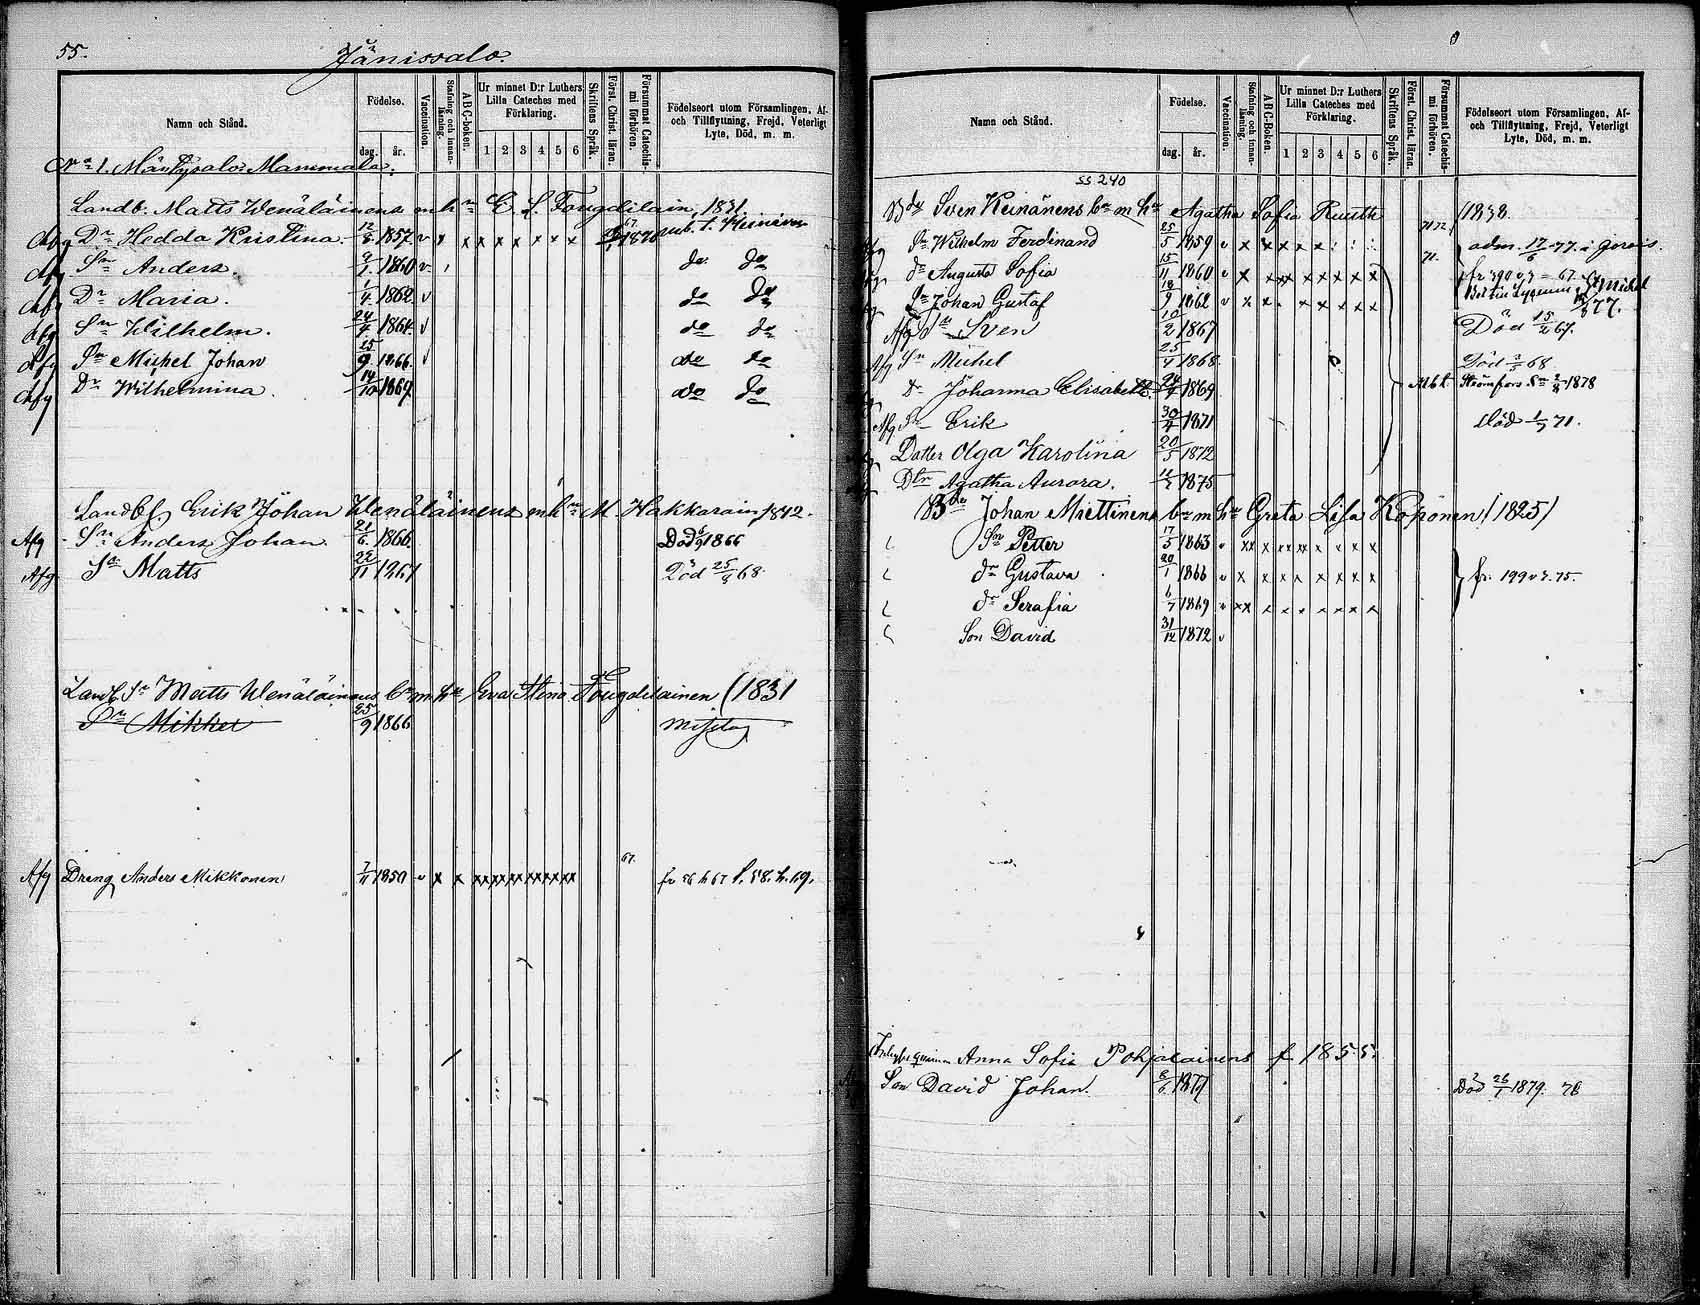 55.
Jänissalo.
Namn och Stånd.
Födelse.
dag. år.
Vaccination.
Stafning och innanläsning.
ABC-boken.
Ur minnet D:r Luthers Lilla Cateches med Förklaring.
1 2 3 4 5 6
Skriftens Språk.
Först. Christ. läran.
Försummat Catechismi förhören.
Födelseort utom Församlingen, Af- och Tillflyttning, Frejd, Veterligt Lyte, Död, m. m.
No 1. Mäntysalo: Mammala.
Landb. Matts Wenäläinens m hu E. S. Fougdilain, 1831.
Afg Dr Hedda Kristina. 12/5 1857. v x x x x x x x x 67 1876
Afg Sn Anders. 9/1 1860 v do do
Afg Dr Maria. 1/4 1862. v do do
Afg Sn Wilhelm. 24/4 1864. v do do
Afg Sn Michel Johan 25/9 1866. v do do
Afg Dr Wilhelmina. 14/10 1869. do do
Landbf. Erik Johan Wenäläinens m hu M Hakkarain, 1842.
Afg Sn Anders Johan 21/6 1866. Död 6/9 1866
Afg Sn Matts 22/11 1867 Död 25/9 68.
Landb. Sn Matts Wenäläinens bn m hu Eva Stina Fougdilainen (1831
Sn Mikkel 25/9 1866 misstag
67.
Afg Dreng Anders Mikkonen 7/11 1850 v x x xx xx xx xx xx xx fr 56 h 67 f. 58. h. 69.
Namn och Stånd.
Födelse.
dag. år.
Vaccination.
Stafning och innanläsning.
ABC-Boken.
Ur minnet D:r Luthers Lilla Catechese med Förklaring.
1 2 3 4 5 6
Skriftens Språk.
Först. Christ. läran.
Försummat Catechismi förhören.
Födelseort utom Församlingen, Af- och Tillflyttning, Frejd, Veterligt Lyte, Död, m. m.
ss 240
Bde Sven Keinänens bn m hu Agatha Sofia Ruuth (1838.
Sn Wilhelm Ferdinand 25/5 1859 v x x x x x x adm. 17/6 77. i Gerois.
dr Augusta Sofia 15/11 1860 v x x x x x x x x 71. fr 390 v 3 67.
Sn Johan Gustaf 18/9 1862 v x x x x x x x x
Afg Sn Sven 10/2 1867 Död 15/2 67.
Afg Sn Michel 25/4 1868. Död 2/5 68
dr Johanna Elisabeth 24/4 1869 Attest. Strömfors 1878
Afg Sn Erik 30/4 1871 död 1/7 71.
Dotter Olga Karolina 20/5 1872
Dtr Agatha Aurora. 1875
Bde Johan Miettinens bn m hu Greta Lisa Koponen (1825)
Sn Petter 17/5 1863 v xx x xx xx x x x x
dr Gustava 20/1 1866 v x x x x x x x x fr. 199 v 3. 75.
dr Serafia 6/7 1869 v xx x x x x x x x
Son David 31/12 1872 v
Anna Sofia Pohjalainens f 1855.
Son David Johan. 8/6 1877 Död 26/1 1879. 78